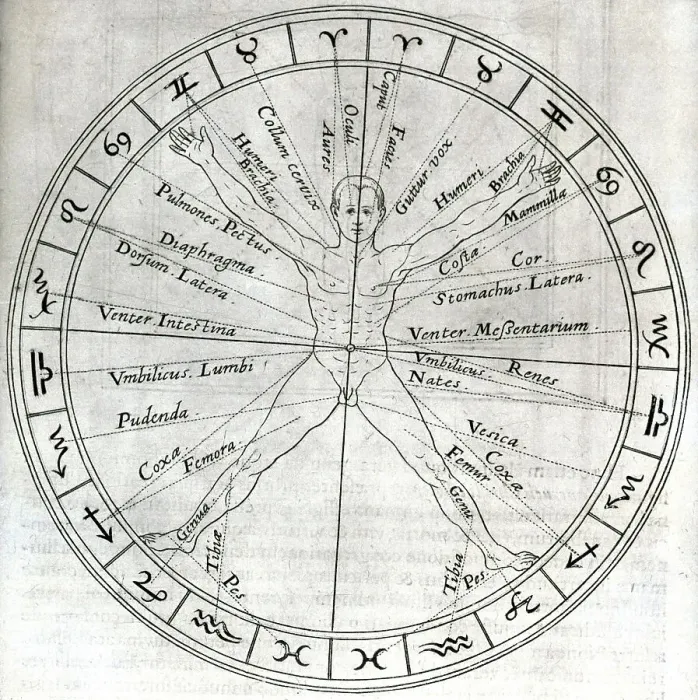 ♈ ♈
♉ ♉
♊ ♊
♋ ♋
♌ ♌
♍ ♍
♎ ♎
♏ ♏
♐ ♐
♑ ♑
♒ ♒
♓ ♓
Collum cervix
Aures
Oculi
Caput
Facies
Guttur vox
Humeri
Brachia
Humeri
Brachia
Mammillæ
Pulmones. Pectus
Diaphragma
Dorsum. Latera
Costæ
Cor.
Stomachus. Latera.
Venter Intestina
Venter. Meßentarium
Vmbilicus. Lumbi
Vmbilicus
Renes
Nates
Pudenda
Vesica
Coxæ
Femora
Femur
Coxæ
Genua
Genu
Tibiæ
Pes
Tibia
Pes